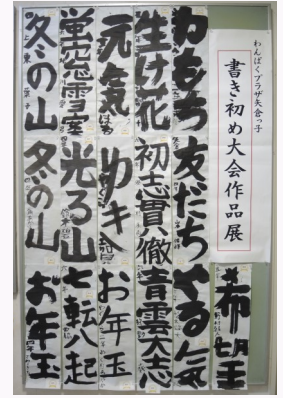 わんぱくプラザ矢倉っ子
書き初め大会作品展
希望
力もち
友だち
やる気
生け花
初志貫徹
青雲大志
元気
ゆき
お年玉
蛍窓雪案
光る山
七転八起
冬の山
冬の山
お年玉